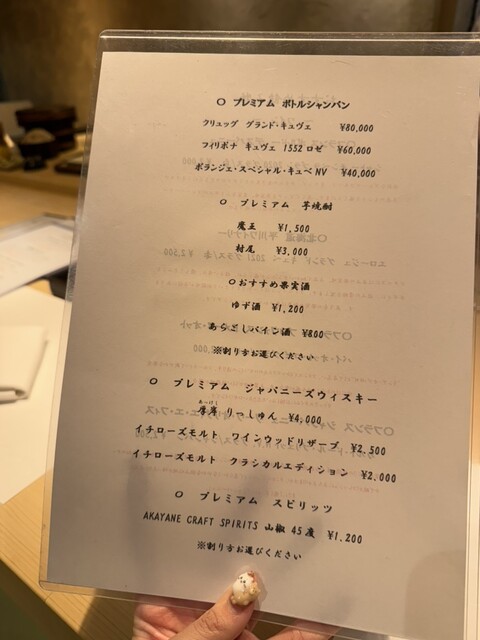 ○ プレミアム ボトルシャンパン
クリュッグ グランド・キュヴェ ¥80,000
フィリポナ キュヴェ 1552 ロゼ ¥60,000
ボランジェ・スペシャル・キュベ NV ¥40,000
○ プレミアム 芋焼酎
魔王 ¥1,500
村尾 ¥3,000
○おすすめ果実酒
ゆず酒 ¥1,200
あらごしパイン酒 ¥800
※割り方お選びください
○ プレミアム ジャパニーズウィスキー
あっけし
厚岸 りっしゅん ¥4,000
イチローズモルト ワインウッドリザーブ ¥2,500
イチローズモルト クラシカルエディション ¥2,000
○ プレミアム スピリッツ
AKAYANE CRAFT SPIRITS 山椒 45度 ¥1,200
※割り方お選びください